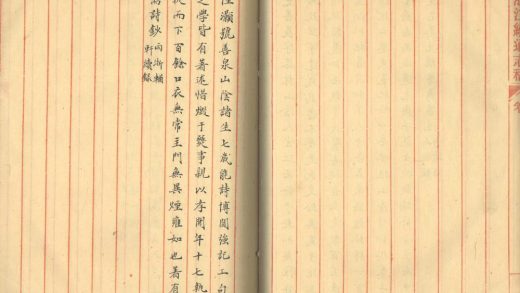 通志稿
灝號善泉山陰諸生七歲能詩博聞強記工
之學皆有著述惜燬于燹事親以孝聞年十七執
而下百餘口衣無常主門無異煙雍如也著有
詩鈔
兩浙輶
軒續錄